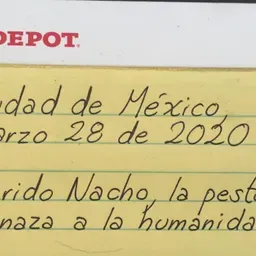 DEPOT.
udad de México,
arzo 28 de 2020
rido Nacho, la pest
naza a la humanida